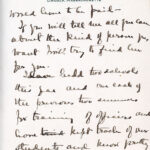 would have to be paid —
If you will tell me all you can
about the kind of person you
want I will try to find him
for you.
I have held two schools
this year and one each of
the previous two summers
for training of officers and
have kept track of our
students and know pretty